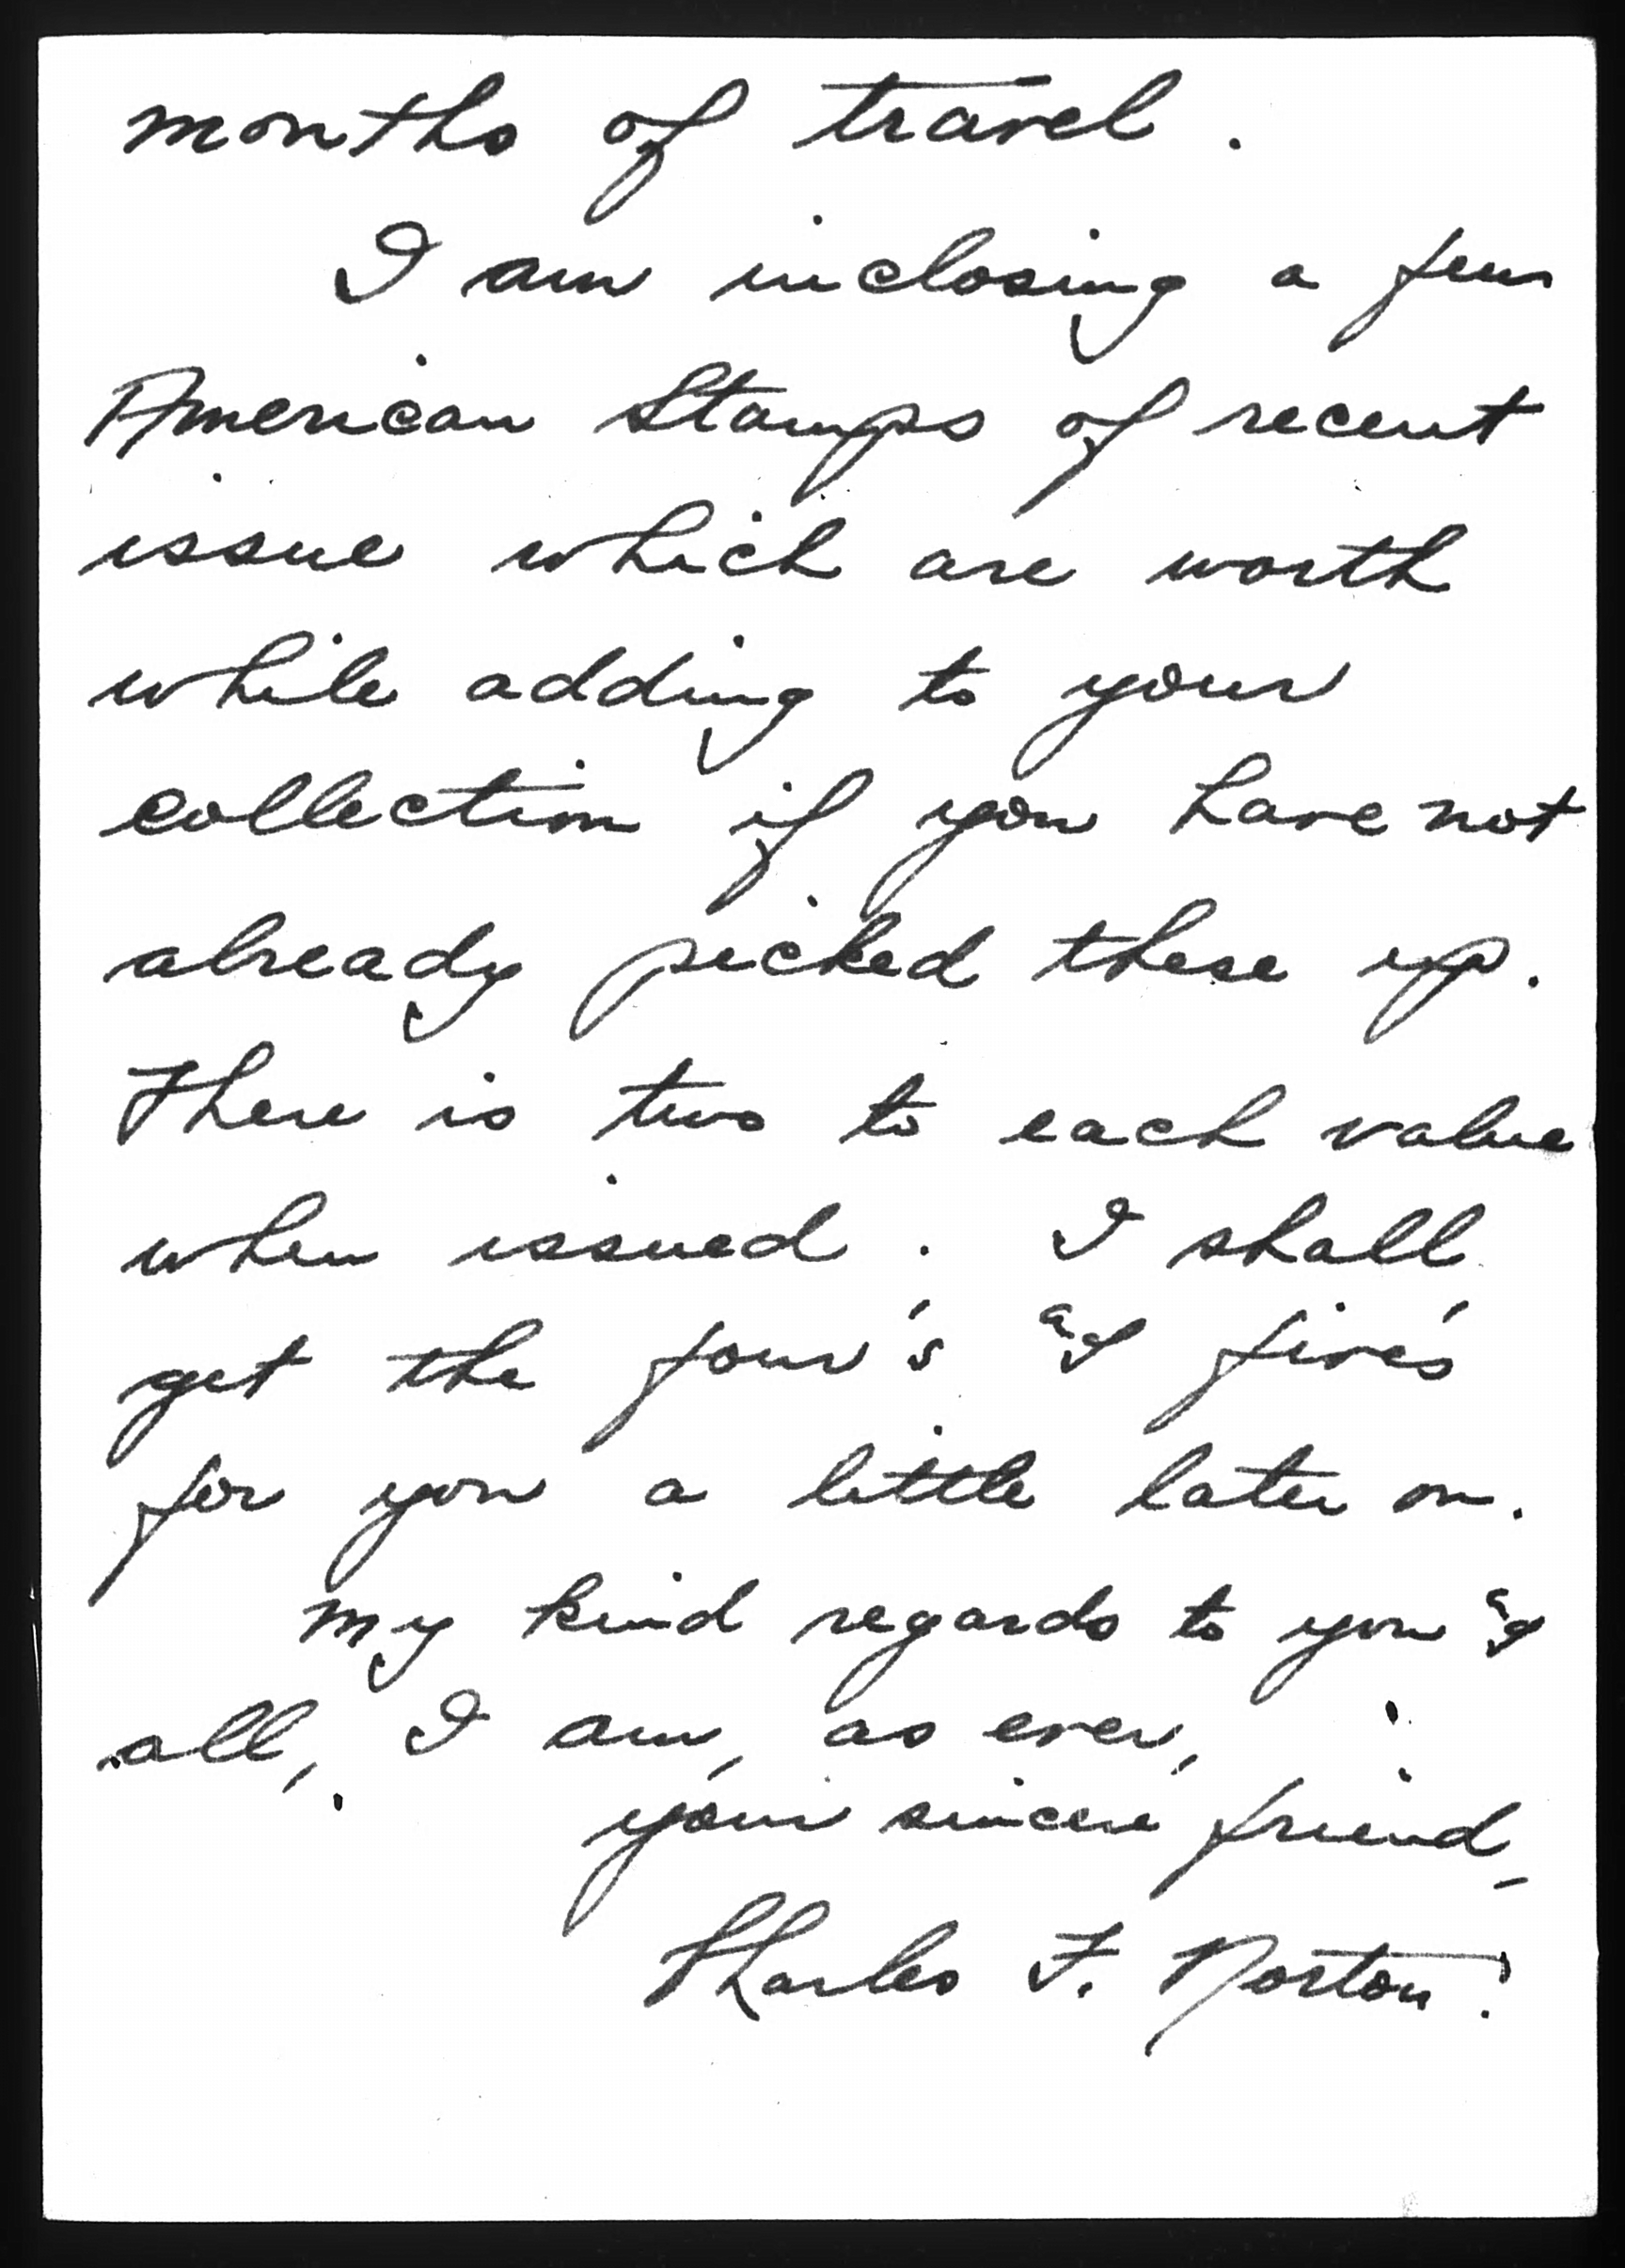 months of travel.
I am inclosing a few
American Stamps of recent
issue which are worth
while adding to your
collection if you have not
already picked these up.
There is two to each value
when issued. I shall
get the four's and five's
for you a little later on.
My kind regards to you and
all, I am, as ever,
your sincere friend,
Charles F. Norton.